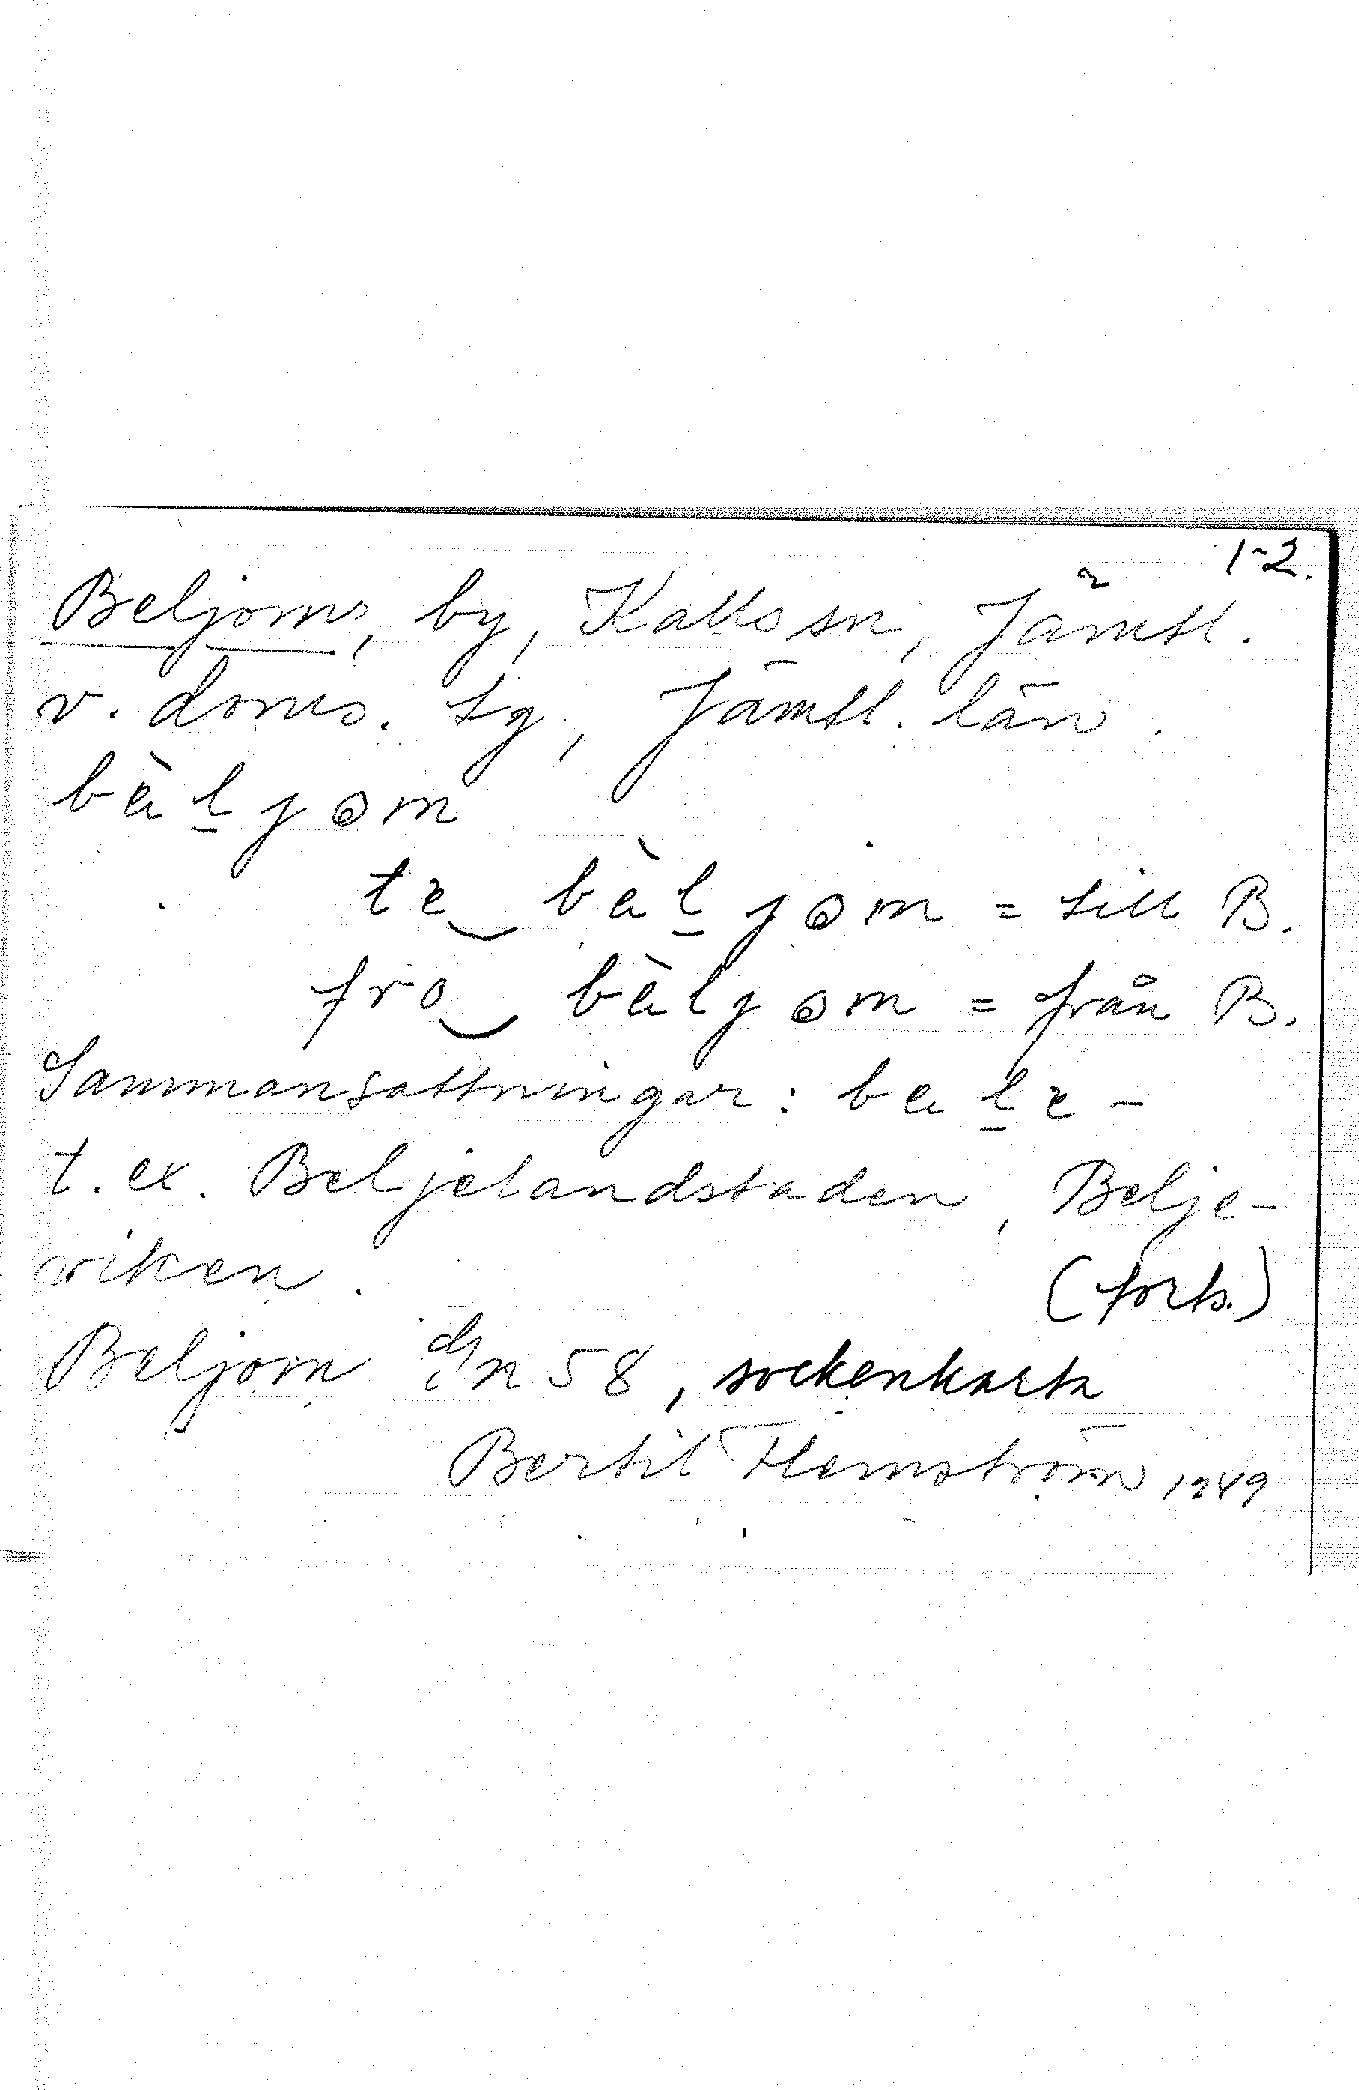 1-2.
Beljom, by, Kalls sn, Jämtl.
v. doms. tg, Jämtl. län.
bèl̲jom
te bèl̲jom = till B.
fro bèljom = från B.
Sammansättningar: bel̲e-
t. ex. Beljelandstaden, Belje-
viken.
(forts.)
Beljom 58, sockenkarta
Bertil Flemström 1949